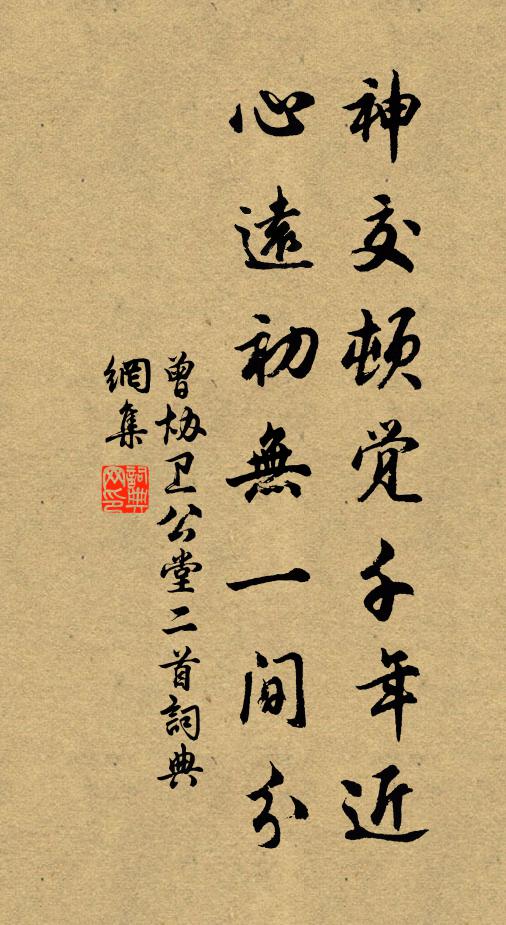 神交頓觉千年近
心遠初無一间分
曾协卫公堂二首詞典
網集
詞典
网印